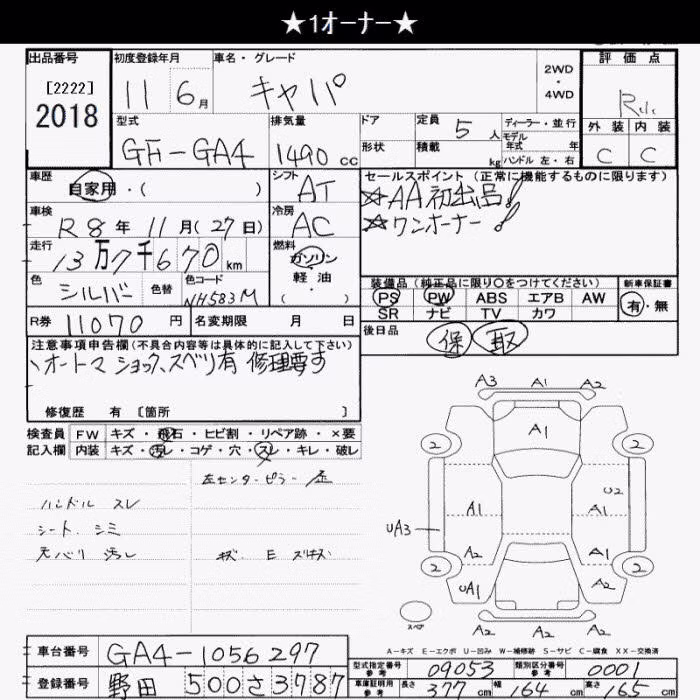 ★1オーナー★
出品番号
[2222]
2018
初度登録年月
11 6月
車名・グレード
キャパ
2WD
・
4WD
評価点
R
外装 内装
C C
型式
GF-GA4
排気量
1490 cc
ドア
形状
定員 5 人
積載 kg
ディーラー・並行
モデル年式 年
ハンドル 左・右
車歴
自家用・( )
シフト
AT
セールスポイント(正常に機能するものに限ります)
☆AA初出品!
☆ワンオーナー!
車検
R8年 11月(27日)
冷房
AC
走行
13万7千670 km
燃料
ガソリン
軽油
( )
色
シルバー
色替
色コード
NH583M
装備品(純正品に限り○をつけてください)
PS PW ABS エアB AW
SR ナビ TV カワ
新車保証書
有・無
R券 11070 円
名変期限 月 日
後日品
保 取
注意事項申告欄(不具合内容等は具体的に記入して下さい)
、オートマ ショック、スベリ有 修理要す
修復歴 有 [箇所 ]
検査員記入欄
FW キズ・飛石・ヒビ割・リペア跡・×要
内装 キズ・汚レ・コゲ・穴・スレ・キレ・破レ
左センターピラー
ハンドル スレ
シート シミ
天バリ 汚レ
キズ E
A3 A1 A2
A1
2 2
A1 U2
UA3
A2 A1
2 2
UA1 A2
スペア
A2 A2 A2
A-キズ E-エクボ U-凹み W-補修跡 S-サビ C-腐食 XX-交換済
車台番号
GA4-1056297
登録番号
野田 500さ3787
型式指定番号
参考
09053
類別区分番号
参考
0001
車庫証明用
参考
長さ 377 cm
幅 164 cm
高さ 165 cm